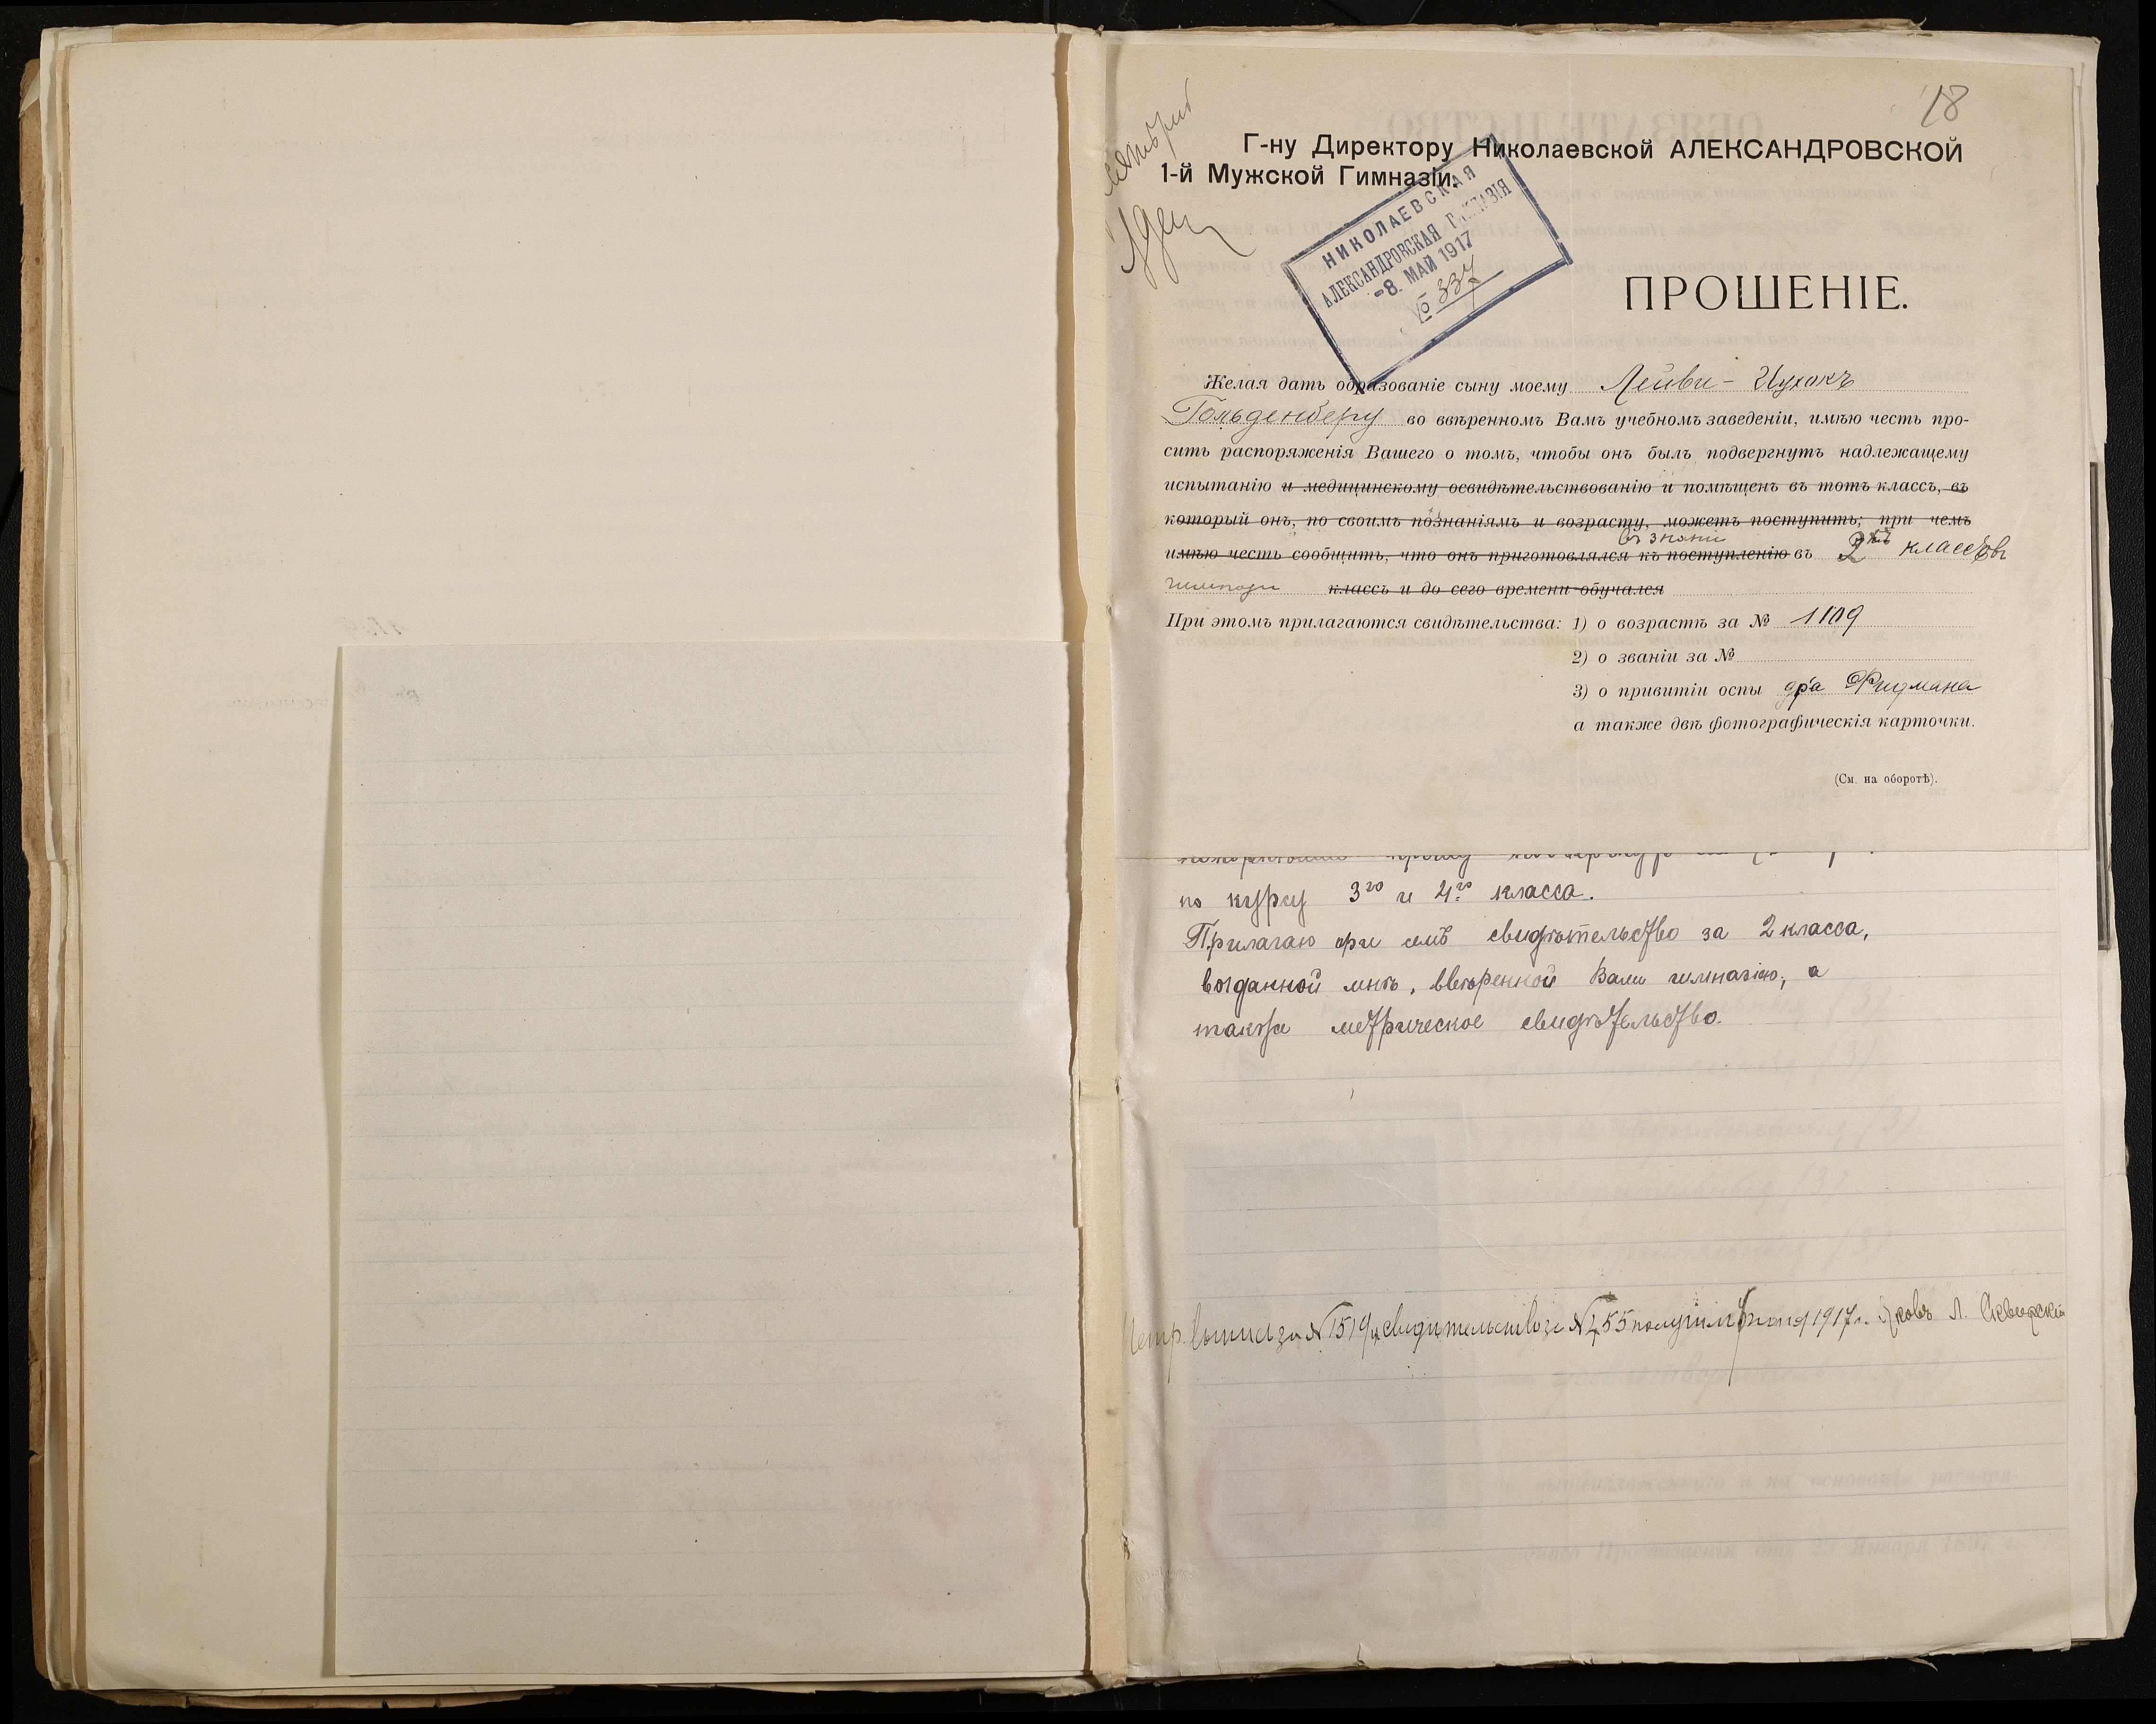 18
Г-ну Директору Николаевской АЛЕКСАНДРОВСКОЙ
1-й Мужской Гимназіи.
НИКОЛАЕВСКАЯ
АЛЕКСАНДРОВСКАЯ ГИМНАЗІЯ
-8. МАЙ 1917
№ 337
ПРОШЕНІЕ.
Желая дать образованіе сыну моему Лейви-Ицхокъ
Гольденбергу во ввѣренномъ Вамъ учебномъ заведеніи, имѣю честь про-
сить распоряженія Вашего о томъ, чтобы онъ былъ подвергнутъ надлежащему
испытанію и медицинскому освидѣтельствованію и помѣщенъ въ тотъ классъ, въ
который онъ, по своимъ познаніямъ и возрасту, можетъ поступить; при чемъ
въ знаніи
имѣю честь сообщить, что онъ приготовлялся къ поступленію въ 2хъ классовъ
классъ и до сего времени обучался
При этомъ прилагаются свидѣтельства: 1) о возрастѣ за № 1109
2) о званіи за №
3) о привитіи оспы д-ра Фидмана
а также двѣ фотографическія карточки.
(См. на оборотѣ).
по курсу 3го и 4го класса.
Прилагаю при семъ свидѣтельство за 2 класса,
выданной мнѣ, ввѣренной Вами гимназіею, а
также метрическое свидѣтельство.
Метр. выпись за № 1519 и свидѣтельство за № 455 получилъ 1917 г. Яковъ Л. Сквирскій